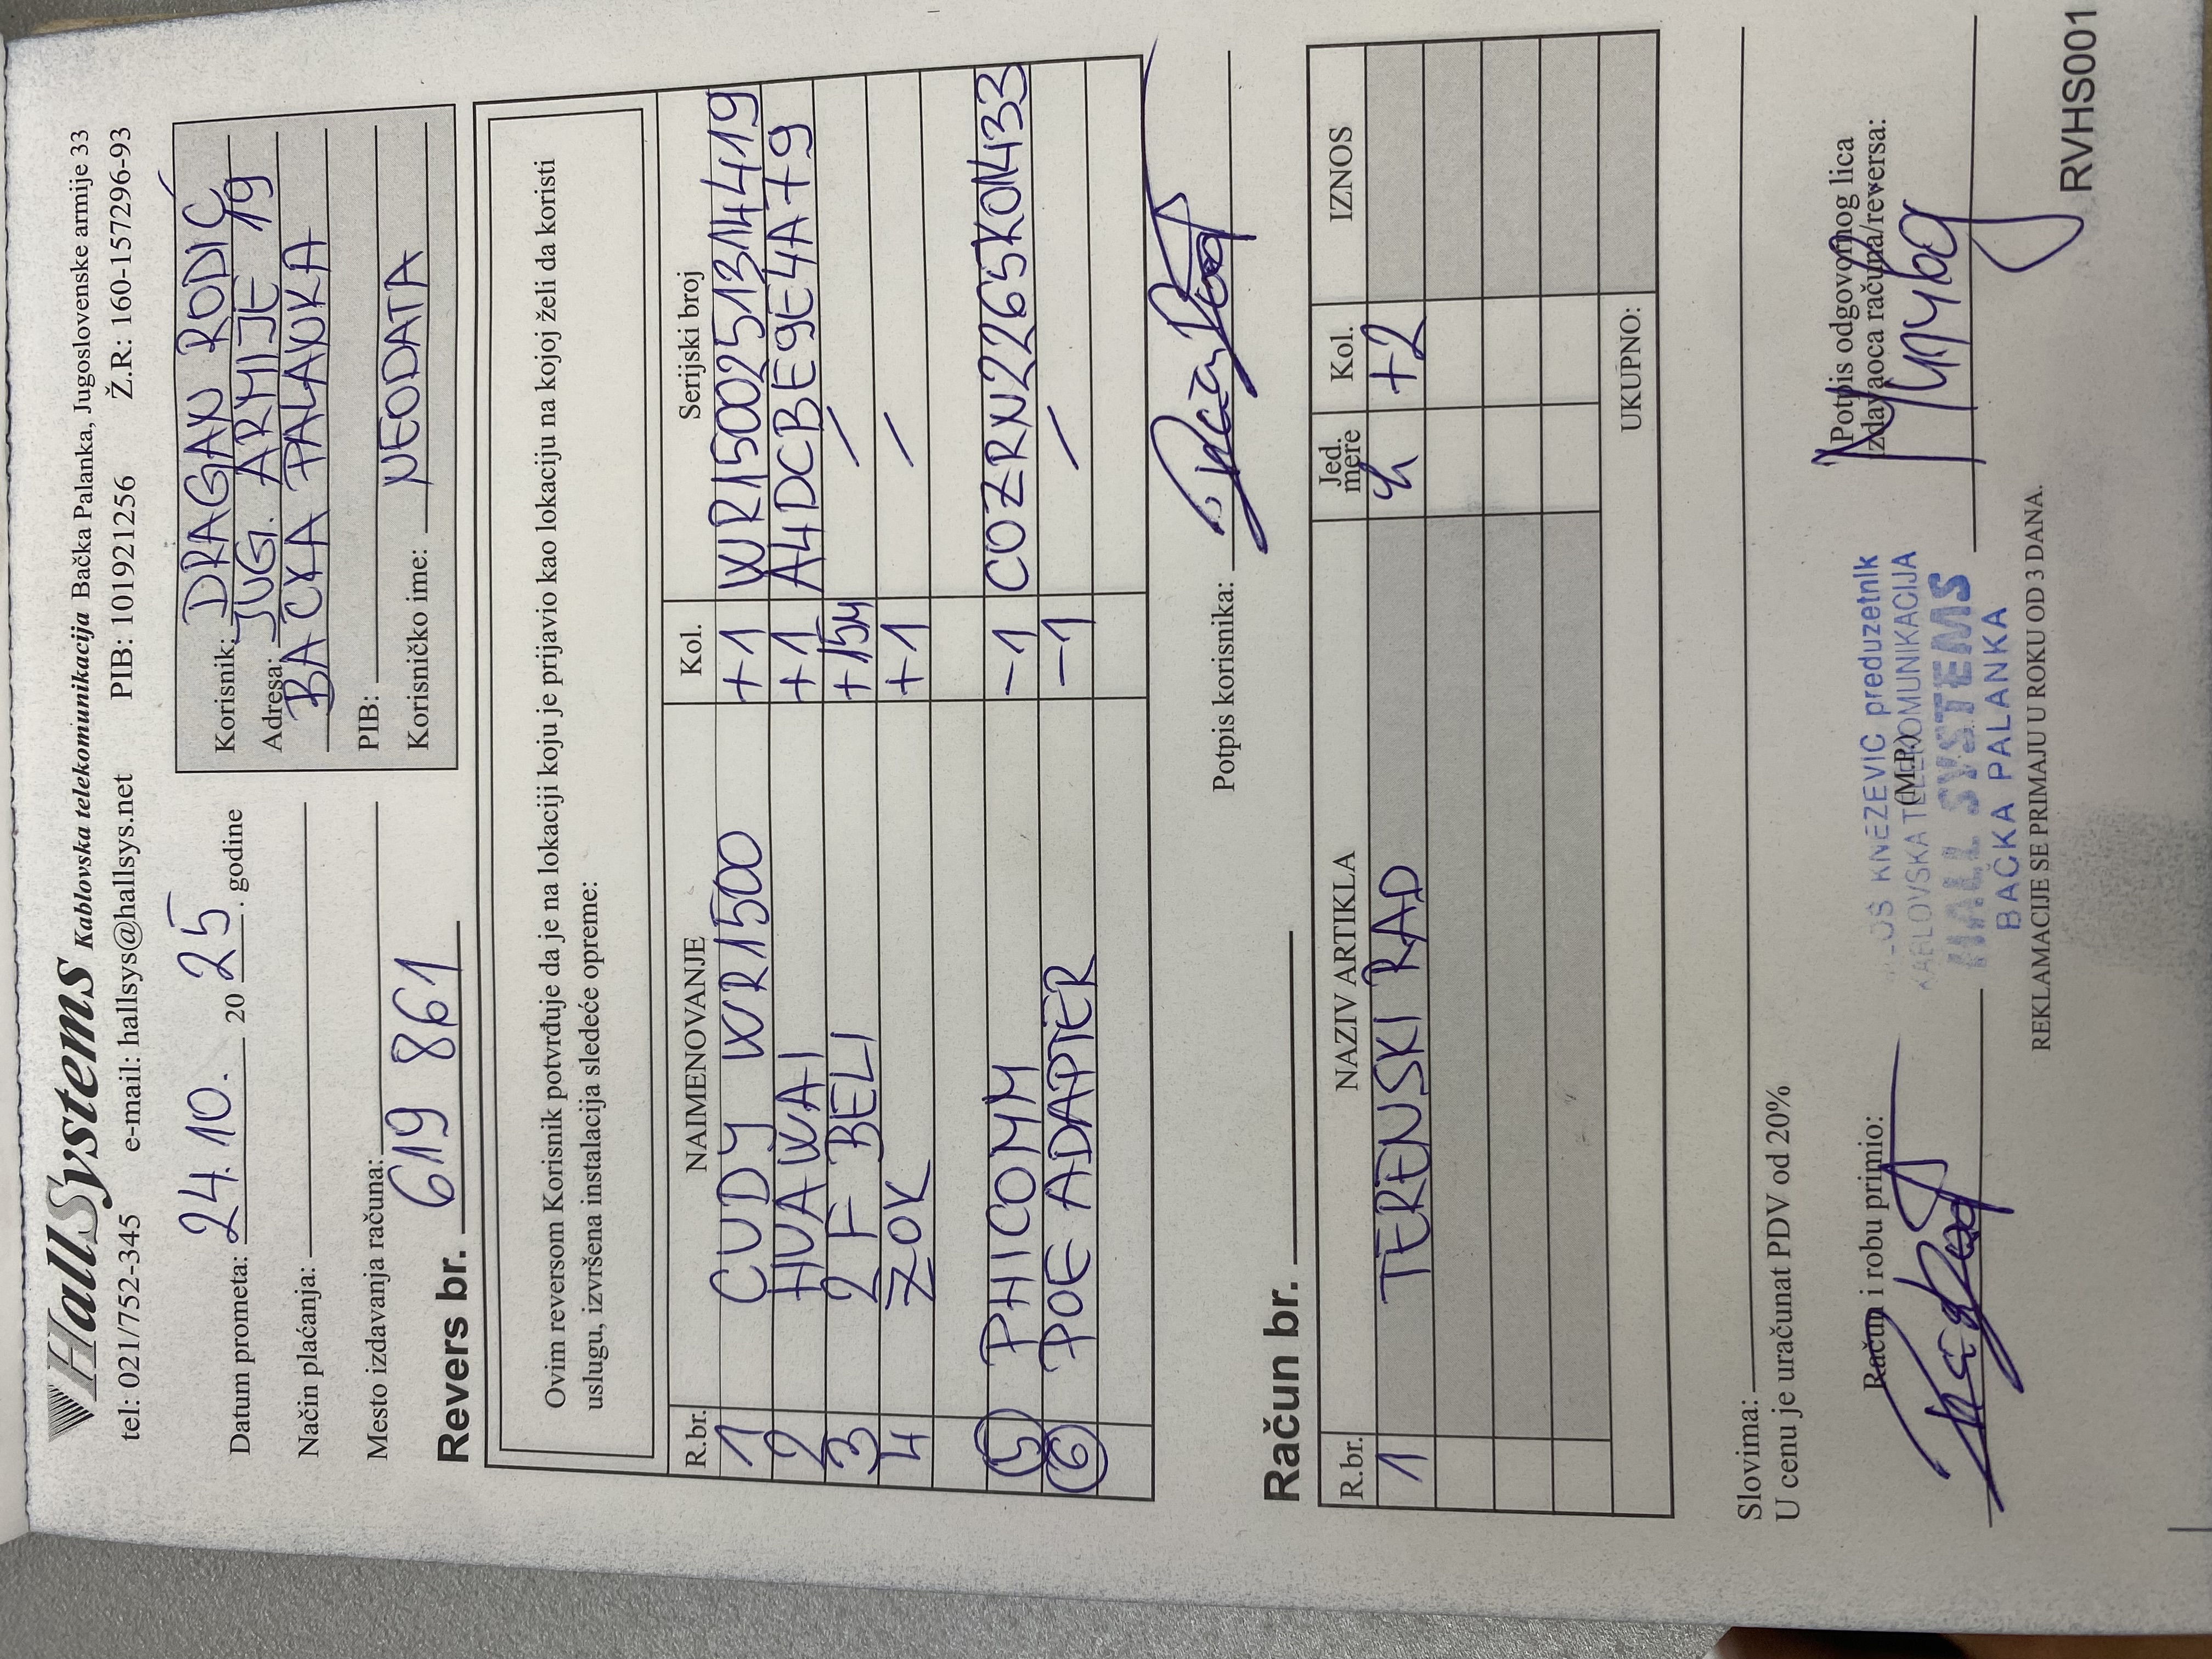 HallSystems Kablovska telekomunikacija Bačka Palanka, Jugoslovenske armije 33
tel: 021/752-345 e-mail: hallsys@hallsys.net PIB: 101921256 Ž.R: 160-157296-93
Datum prometa: 24.10. 2025. godine
Način plaćanja:
Mesto izdavanja računa:
Revers br. 619 861
Korisnik: DRAGAN RODIĆ
Adresa: JUG. ARMIJE 19
BAČKA PALANKA
PIB:
Korisničko ime: NEODATA
Ovim reversom Korisnik potvrđuje da je na lokaciji koju je prijavio kao lokaciju na kojoj želi da koristi
uslugu, izvršena instalacija sledeće opreme:
R.br. NAIMENOVANJE Kol. Serijski broj
1 CUDY WR1500 +1 WR15002513144419
2 HUAWAI +1 A4DCBE9E4A79
3 2F BELI +15M /
4 ZOK +1 /
5 PHICOMM -1 COZRN2265K01433
6 POE ADAPTER -1 /
Potpis korisnika:
Račun br.
R.br. NAZIV ARTIKLA Jed. mere Kol. IZNOS
1 TERENSKI RAD h +2
UKUPNO:
Slovima:
U cenu je uračunat PDV od 20%
Račun i robu primio:
(M.P.)
Potpis odgovornog lica
izdavaoca računa/reversa:
KNEZEVIC preduzetnik
KABLOVSKA TELEKOMUNIKACIJA
HALL SYSTEMS
BAČKA PALANKA
REKLAMACIJE SE PRIMAJU U ROKU OD 3 DANA.
RVHS001